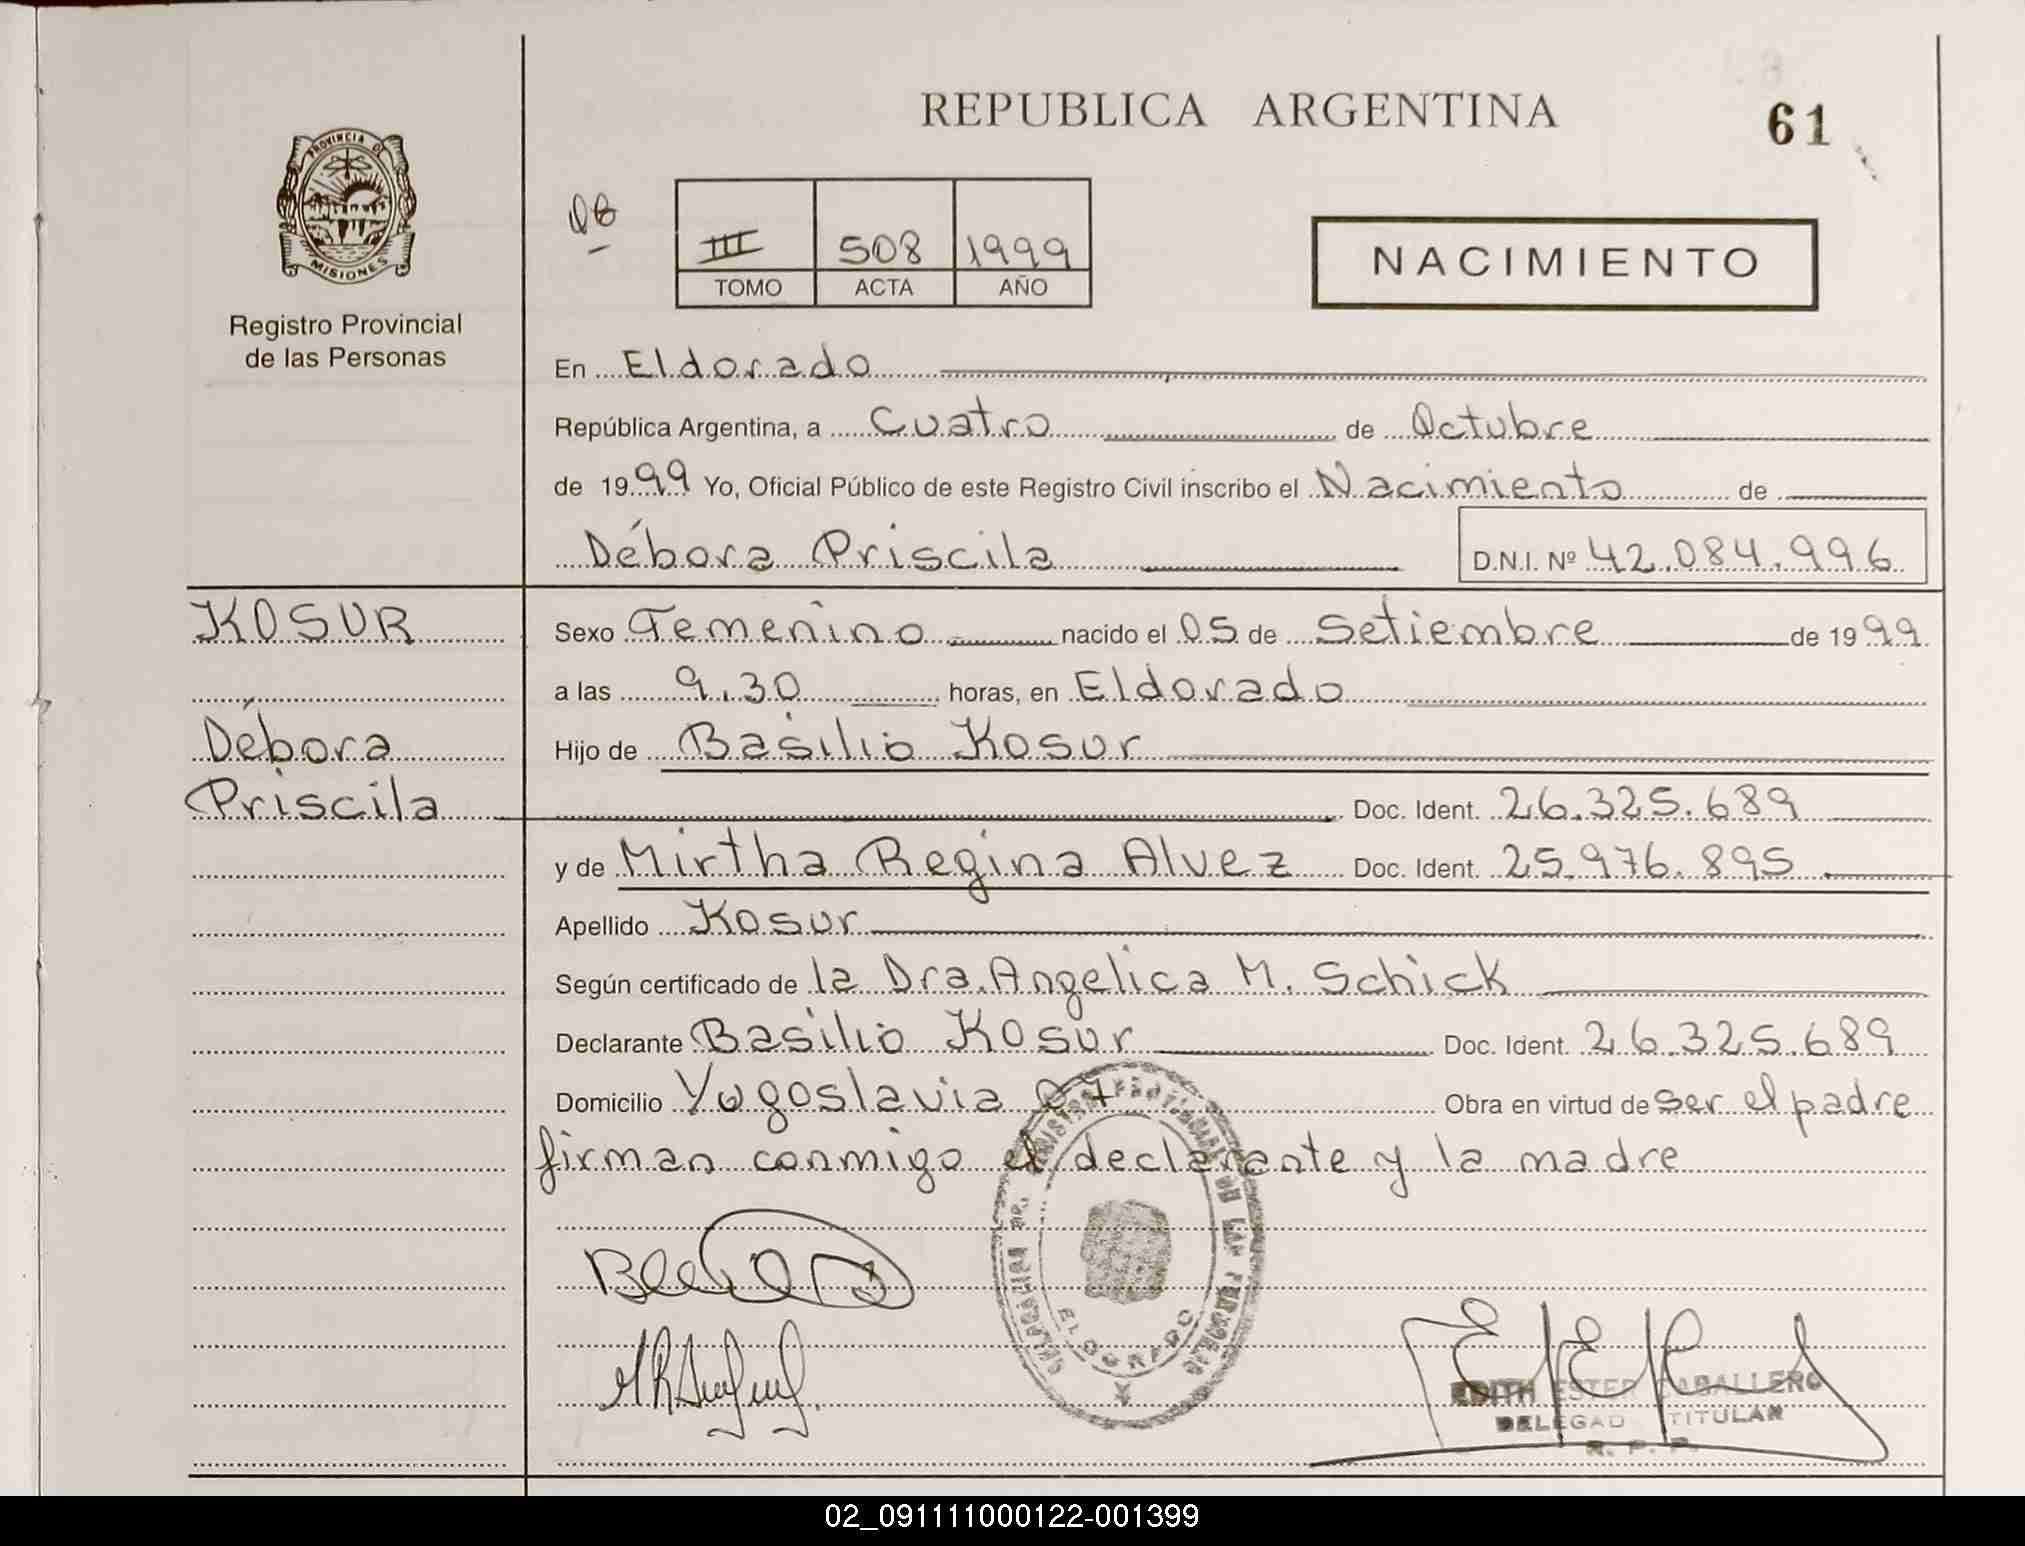 REPUBLICA ARGENTINA
61
PROVINCIA DE
MISIONES
Registro Provincial
de las Personas
III 508 1999
TOMO ACTA AÑO
NACIMIENTO
En Eldorado
República Argentina, a Cuatro de Octubre
de 1999 Yo, Oficial Público de este Registro Civil inscribo el Nacimiento de
Débora Priscila D.N.I. Nº 42.084.996
KOSUR
Sexo Femenino nacido el 05 de Setiembre de 1999
a las 9.30 horas, en Eldorado
Débora
Hijo de Basilio Kosur
Priscila
Doc. Ident. 26.325.689
y de Mirtha Regina Alvez Doc. Ident. 25.976.895
Apellido Kosur
Según certificado de la Dra. Angelica M. Schick
Declarante Basilio Kosur Doc. Ident. 26.325.689
Domicilio Yugoslavia 07 Obra en virtud de ser el padre
firman conmigo el declarante y la madre
ELDORADO
EDITH ESTER CABALLERO
DELEGAD TITULAR
R. P. P.
02_091111000122-001399